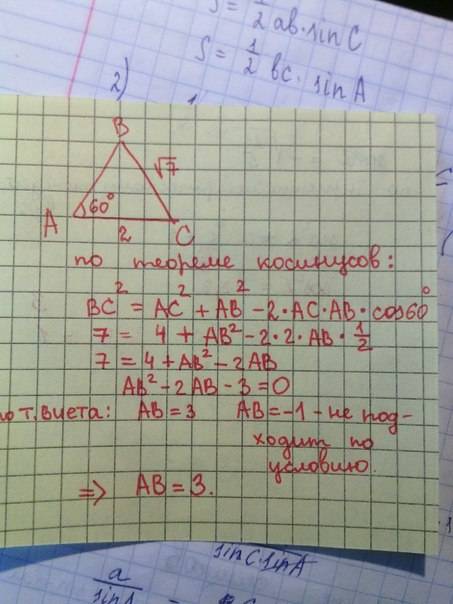 S = 1/2 ab·sin C
S = 1/2 bc · sin A
2)
B
√7
A
60°
2
C
по теореме косинусов:
BC² = AC² + AB² - 2·AC·AB·cos60°
7 = 4 + AB² - 2·2·AB·1/2
7 = 4 + AB² - 2AB
AB² - 2AB - 3 = 0
по т. Виета: AB = 3 AB = -1 - не под-
ходит по
условию.
=> AB = 3.
sin C · sin A
a
sin A